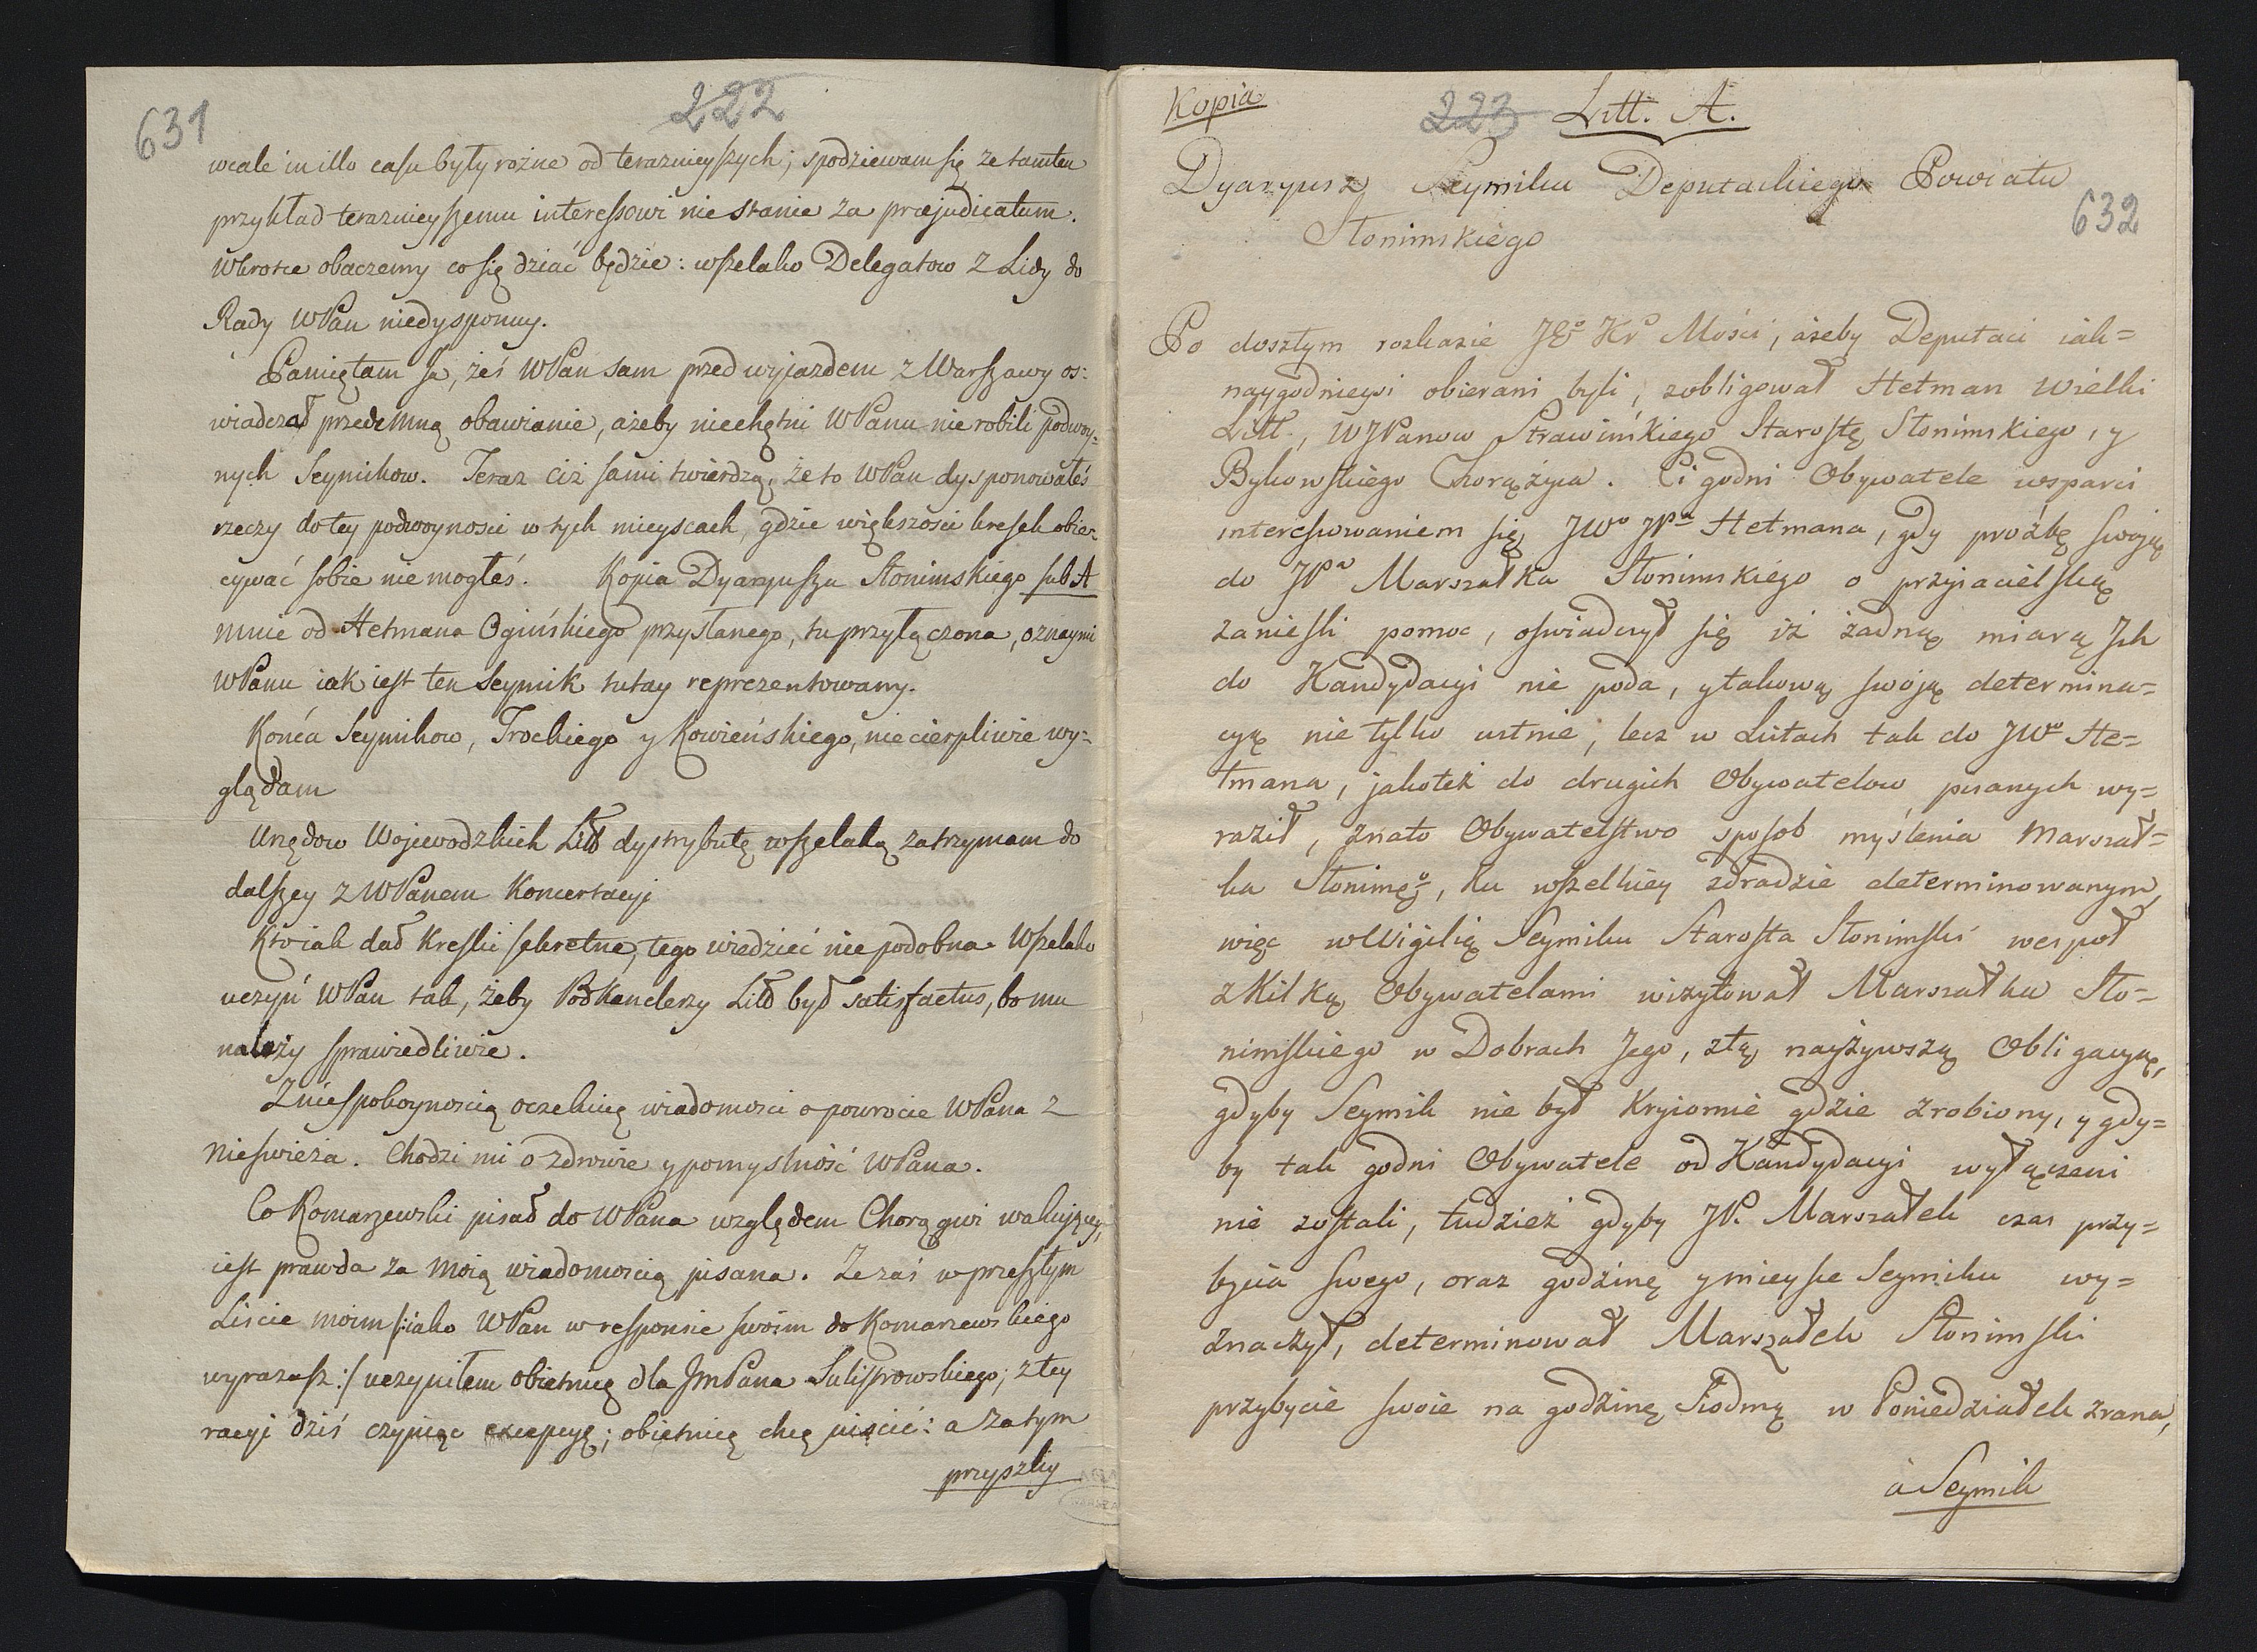 631
222
wcale in illo casu były rożne od teraznieyszych; spodziewam się że tamten
przykład teraznieyszemu interessowi nie stanie za præjudicatum.
Wkrotce obaczemy co się dziać będzie: wszelako Delegatow z Lidy do
Rady WPan niedysponuy.
Pamiętam ja, żeś WPan sam przed wyjazdem z Warszawy os:
wiadczał przedemną obawianie, ażeby niechętni WPanu nie robili podwoy:
nych Seymikow. Teraz ciż sami twierdzą, że to WPan dysponowałeś
rzeczy do tey podwoynosci w tych mieyscach, gdzie większości kresek obie:
cywać sobie nie mogłeś. Kopia Dyaryusza Słonimskiego sub A
mnie od Hetmana Ogińskiego przysłanego, tu przyłączona, oznaymi
WPanu iak iest ten Seymik tutay reprezentowany.
Końca Seymikow, Trockiego y Kowieńskiego, niecierpliwie wy=
glądam
Urzędow Wojewodzkich Litt dystrybutę wszelaką zatrzymam do
dalszey z WPanem Koncertacyi
Kto iak dał Kreski sekretne, tego wiedzieć nie podobna. Wszelako
uczyń WPan tak, żeby Podkanclerzy Litt był satisfactus, bo mu
należy sprawiedliwie.
Z niespokoynoscią oczekuię wiadomosci o powrocie WPana z
Nieswieża. Chodzi mi o zdrowie y pomyslność WPana.
Co Komarzewski pisał do WPana względem Chorągwi wakującey,
iest prawda za moią wiadomoscią pisana. Że zaś w przeszłym
Liscie moim /:iako WPan w responsie swoim do Komarzewskiego
wyrażasz:/ uczyniłem obietnicę dla JmPana Sulistrowskiego; z tey
racyi dziś czyniąc excepcyę; obietnicę chcę uiscić: a zatym
przyszley
Kopia
223 Litt. A.
Dyaryusz Seymiku Deputackiego Powiatu
632
Słonimskiego
Po doszłym rozkazie JGo Kro Mości, ażeby Deputaci iak=
naygodnieysi obierani byli, zobligował Hetman Wielki
Litt., WJPanow Strawińskiego Starostę Słonimskiego, y
Bykowskiego Chorążyca. Ci godni Obywatele wsparci
interessowaniem się JWo JPa Hetmana, gdy proźbę swoję
do JPa Marszałka Słonimskiego o przyiacielską
zaniesli pomoc, oswiadczył się iż żadną miarą Ich
do Kandydacyi nie poda, y takową swoję determina=
cyę nie tylko ustnie, lecz w Listach tak do JWo He=
tmana, jakoteż do drugich Obywatelow pisanych wy=
raził, znało Obywatelstwo sposob myślenia Marszał=
ka Słonimgo, ku wszelkiey zdradzie determinowanym,
więc w Wigilią Seymiku Starosta Słonimski wespoł
z Kilką Obywatelami wizytował Marszałka Sło=
nimskiego w Dobrach Jego, z tą nayżywszą Obligacyą,
gdyby Seymik nie był Kryiomie gdzie zrobiony, y gdy=
by tak godni Obywatele od Kandydacyi wyłączeni
nie zostali, tudzież gdyby JP. Marszałek czas przy=
bycia swego, oraz godzinę y mieysce Seymiku wy=
znaczył, determinował Marszałek Słonimski
przybycie swoie na godzinę Siodmą w Poniedziałek zrana,
à Seymik